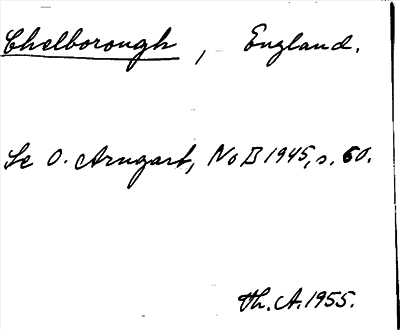 Chelborough, England.
Se O. Arngart, NoB 1945, s. 60.
Th. A. 1955.